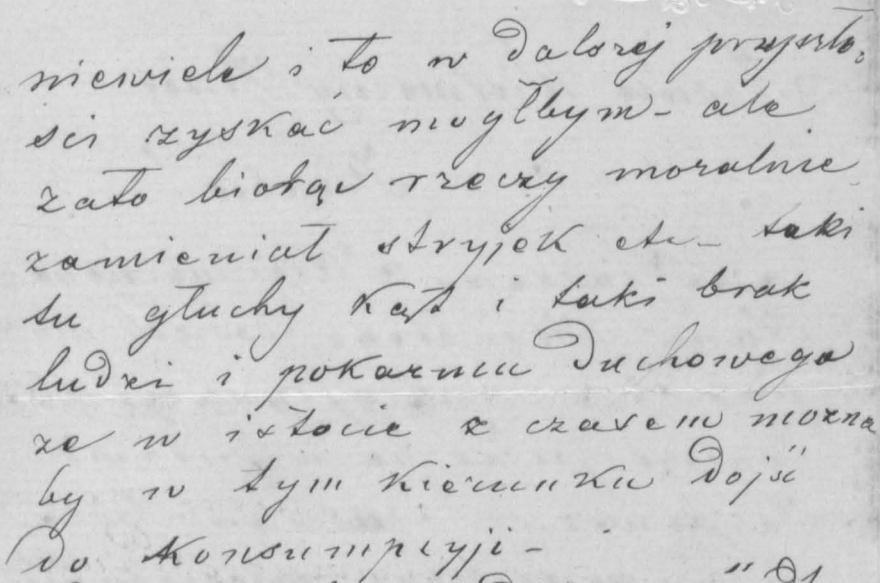 niewiele i to w dalszej przyszło-
ści zyskac mogłbym - ale
zato biorąc rzeczy moralnie
zamieniał stryjek etc - taki
tu głuchy kąt i taki brak
ludzi i pokarmu duchowego
ze w istocie z czasem mozna
by w tym kierunku dojść
do konsumpcyji -